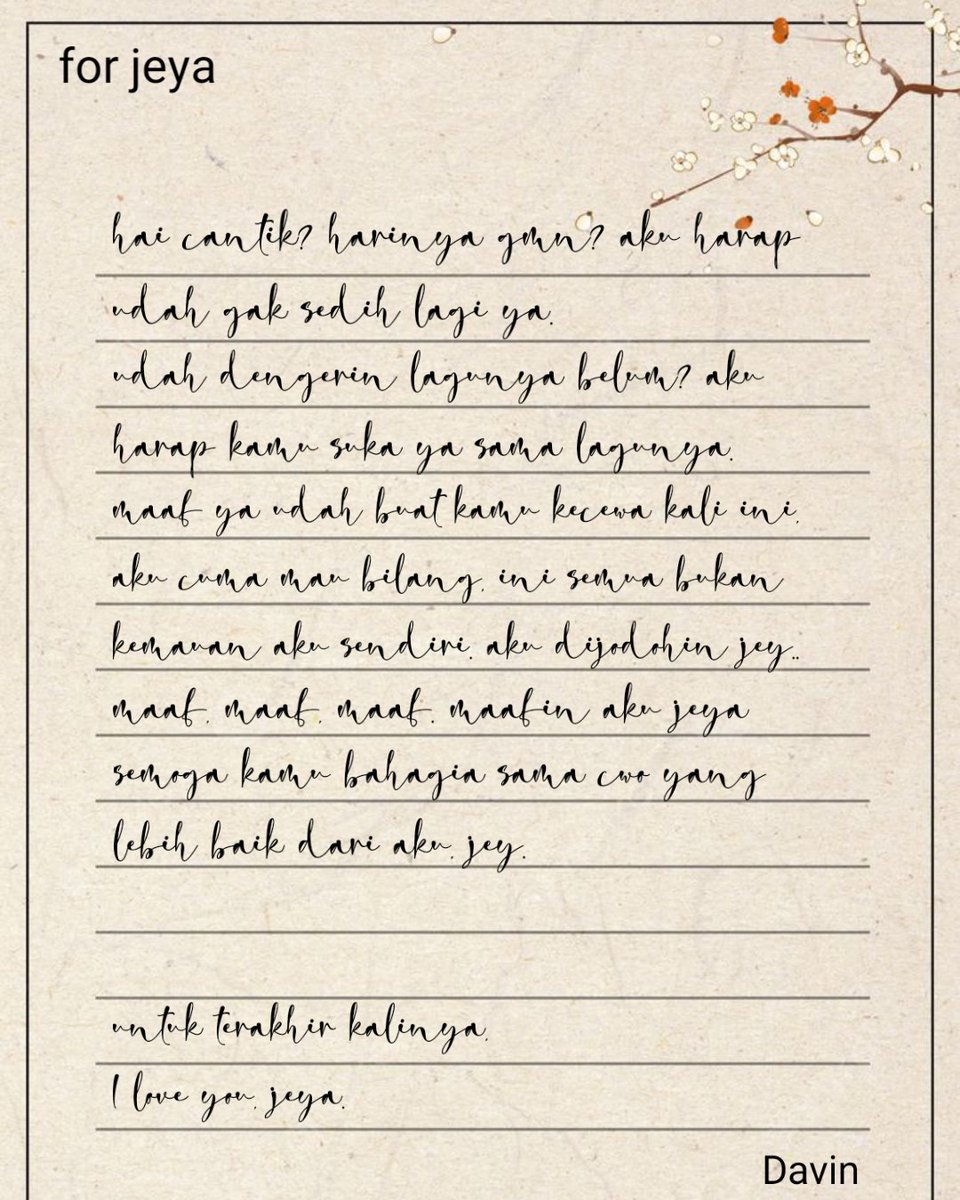 for jeya
hai cantik? harinya gmn? aku harap
udah gak sedih lagi ya.
udah dengerin lagunya belum? aku
harap kamu suka ya sama lagunya.
maaf ya udah buat kamu kecewa kali ini.
aku cuma mau bilang, ini semua bukan
kemauan aku sendiri. aku dijodohin jey..
maaf, maaf, maaf, maafin aku jeya
semoga kamu bahagia sama cwo yang
lebih baik dari aku, jey.
untuk terakhir kalinya,
I love you, jeya.
Davin